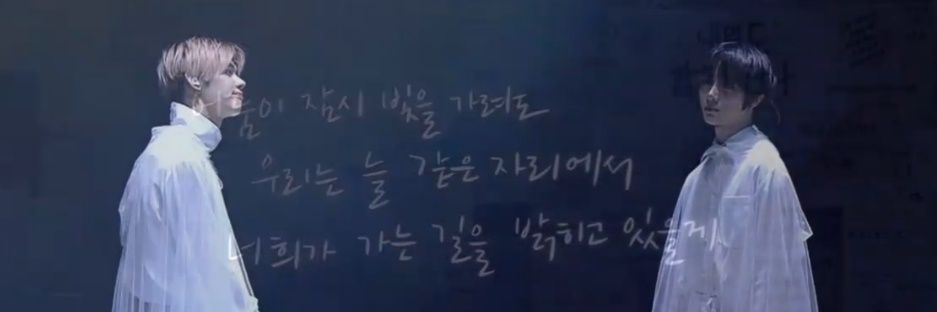 어둠이 잠시 빛을 가려도
우리는 늘 같은 자리에서
너희가 가는 길을 밝히고 있을게